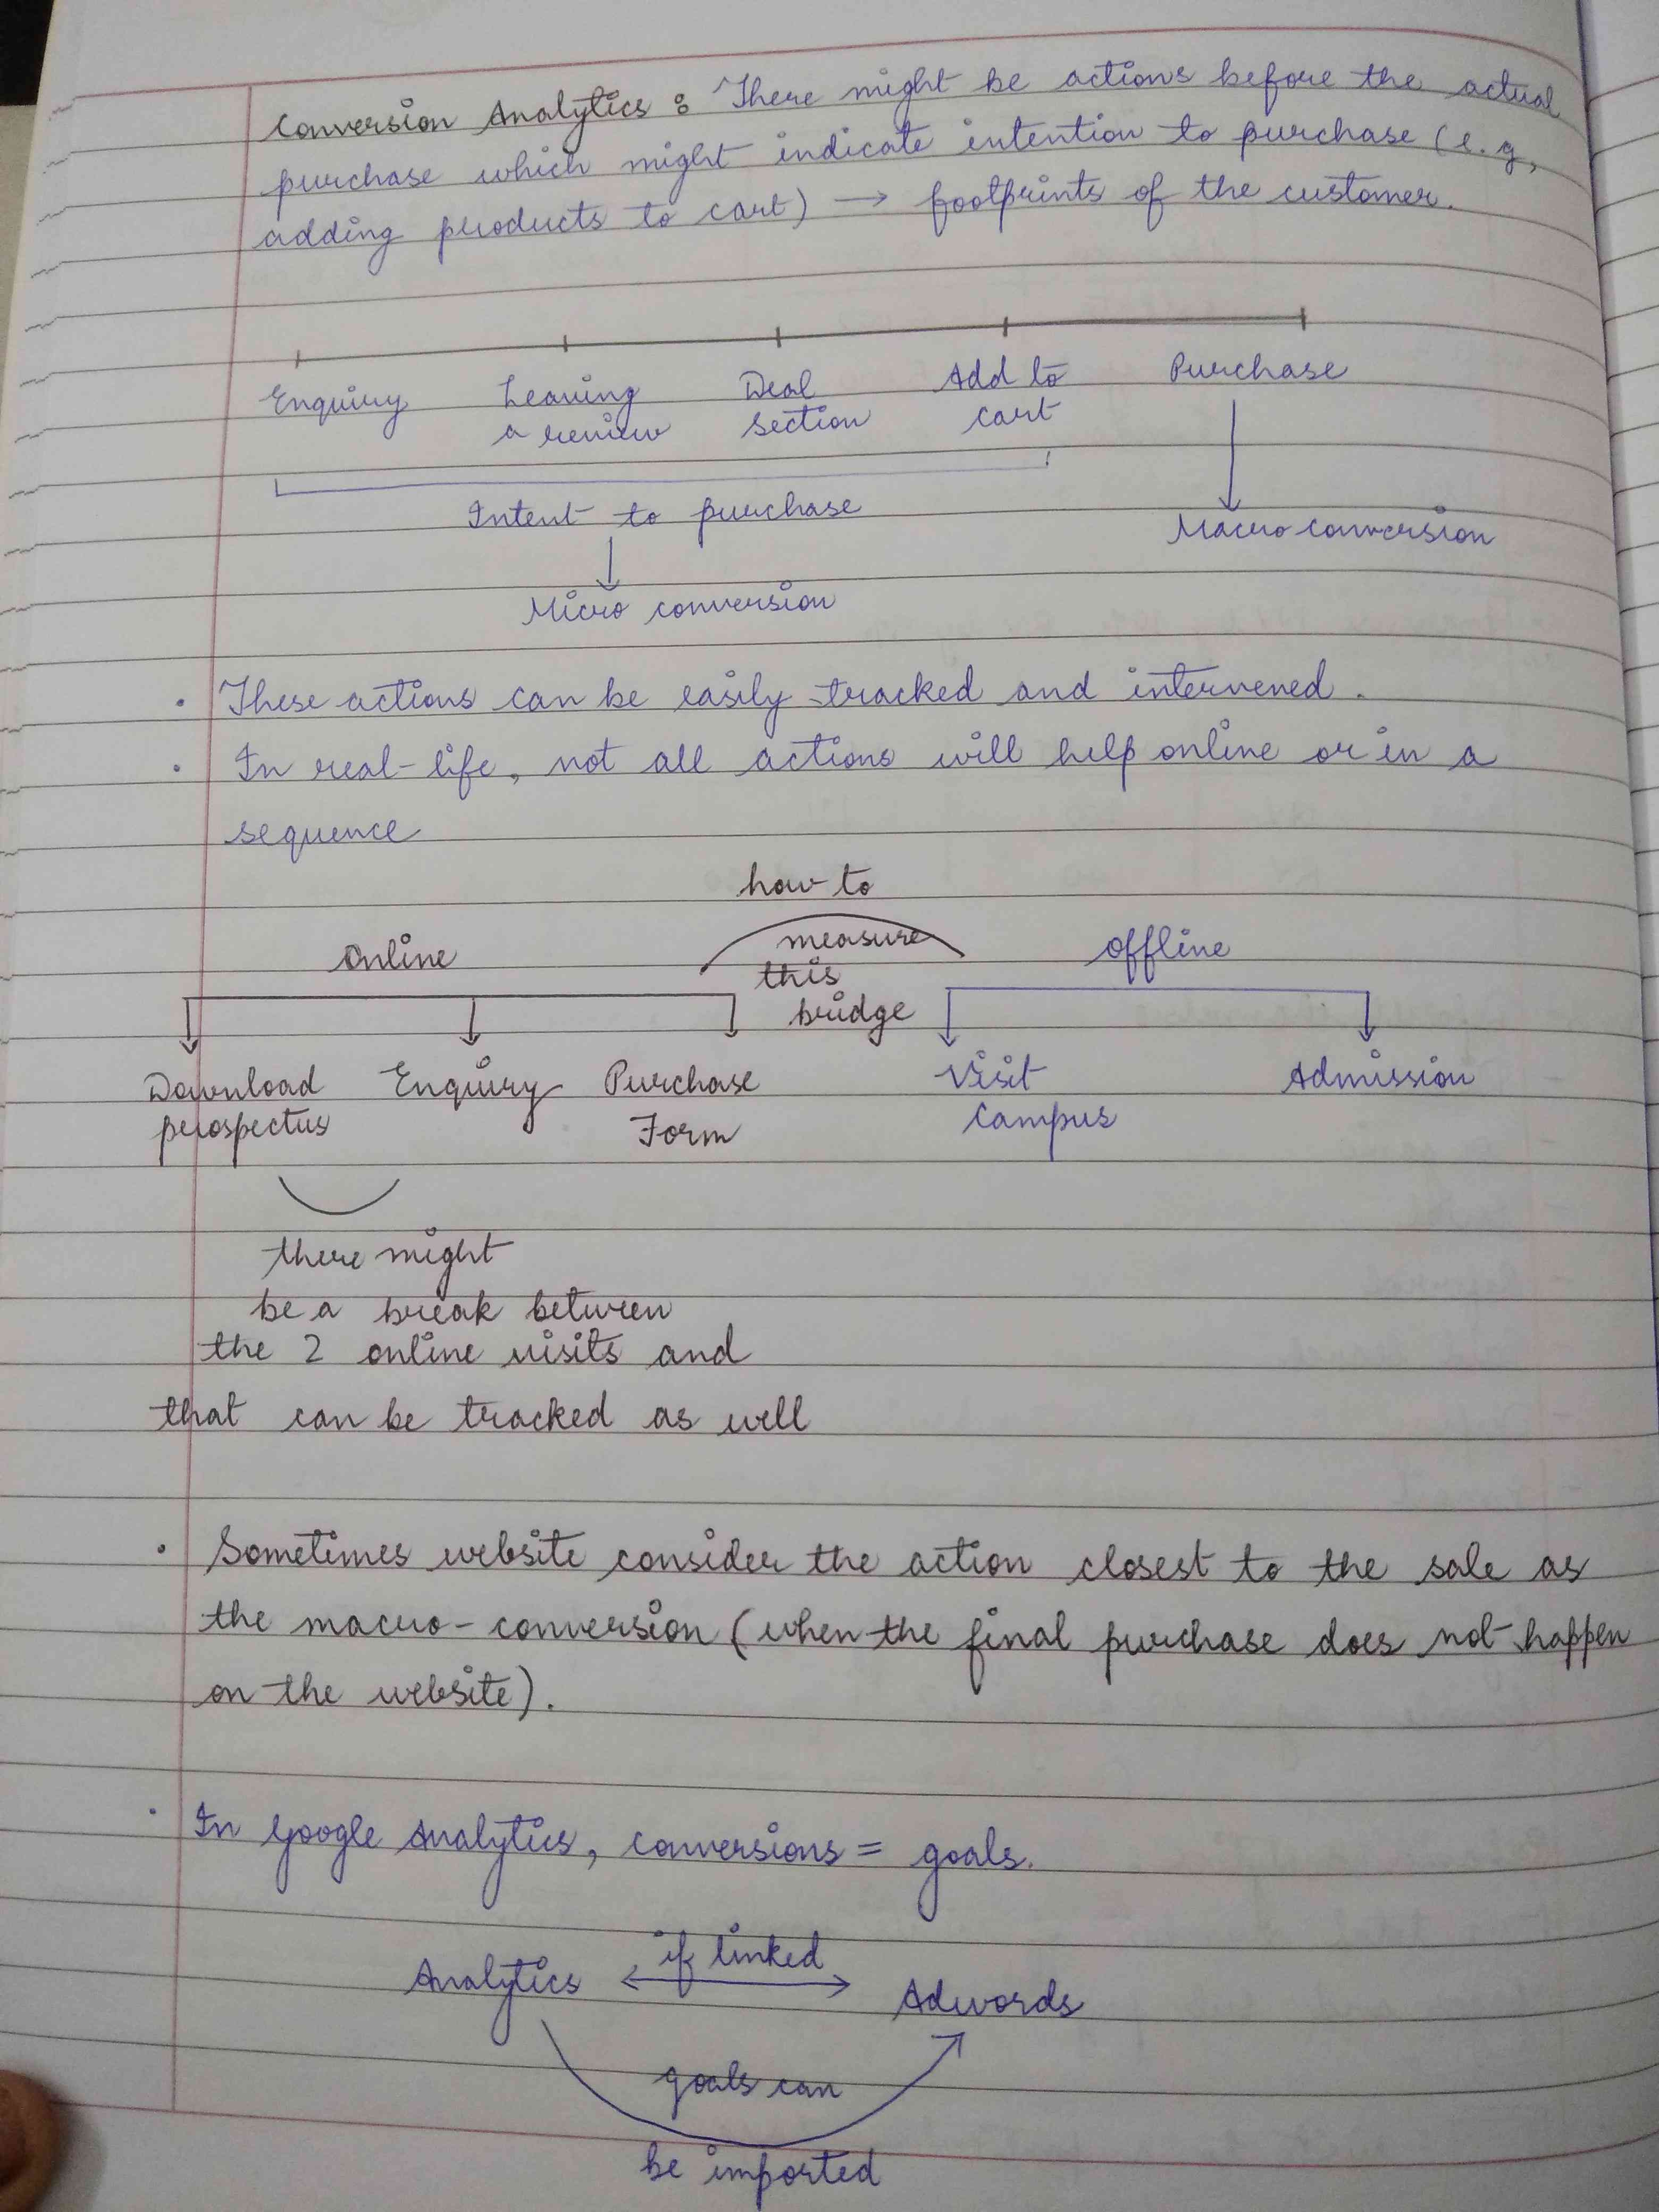 Conversion Analytics : There might be actions before the actual
purchase which might indicate intention to purchase (e.g,
adding products to cart) → footprints of the customer.
Enquiry Leaving Deal Add to Purchase
a review section cart
Intent to purchase Macro conversion
Micro conversion
• These actions can be easily tracked and intervened.
• In real-life, not all actions will help online or in a
sequence
how to
Online measure offline
this
bridge
Download Enquiry Purchase Visit Admission
prospectus Form campus
there might
be a break between
the 2 online visits and
that can be tracked as well
• Sometimes website consider the action closest to the sale as
the macro-conversion (when the final purchase does not happen
on the website).
• In Google Analytics, conversions = goals.
Analytics ↔ if linked Adwords
goals can
be imported